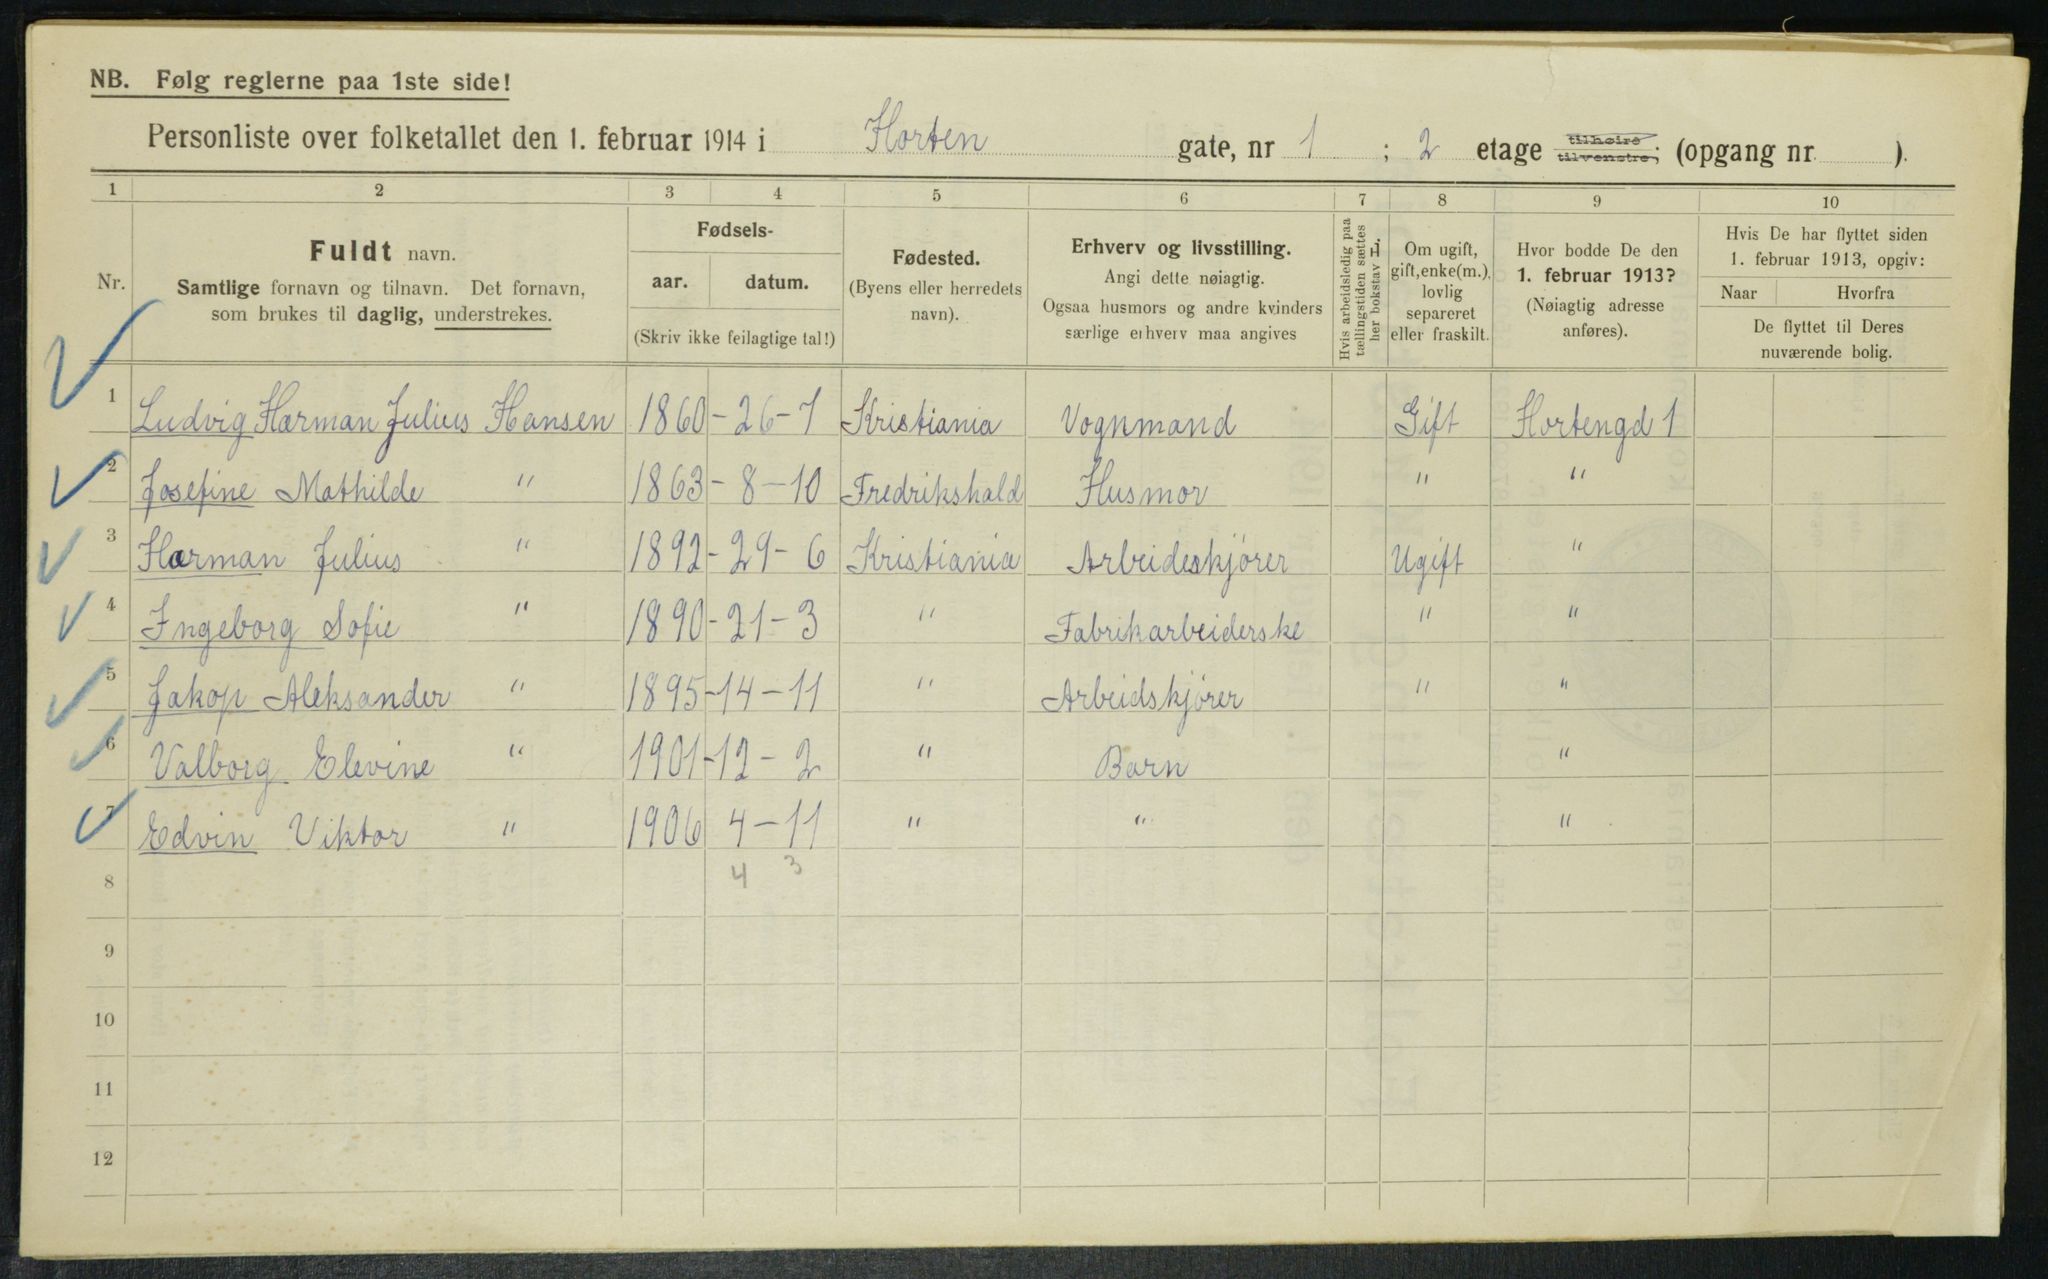 NB. Følg reglerne paa 1ste side!
Personliste over folketallet den 1. februar 1914 i Horten gate, nr 1 ; 2 etage tilhøire tilvenstre, (opgang nr ).
1 2 3 4 5 6 7 8 9 10
Nr.
Fuldt navn.
Samtlige fornavn og tilnavn. Det fornavn,
som brukes til daglig, understrekes.
Fødsels-
aar. datum.
(Skriv ikke feilagtige tal!)
Fødested.
(Byens eller herredets
navn).
Erhverv og livsstilling.
Angi dette nøiagtig.
Ogsaa husmors og andre kvinders
særlige erhverv maa angives
Hvis arbeidsledig paa
tællingstiden sættes
her bokstav L.
Om ugift,
gift, enke(m.),
lovlig
separeret
eller fraskilt.
Hvor bodde De den
1. februar 1913?
(Nøiagtig adresse
anføres).
Hvis De har flyttet siden
1. februar 1913, opgiv:
Naar Hvorfra
De flyttet til Deres
nuværende bolig.
1 Ludvig Herman Julius Hansen 1860 - 26 - 7 Kristiania Vognmand Gift Hortengd 1
2 Josefine Mathilde " 1863 - 8 - 10 Fredrikshald Husmor " "
3 Herman Julius " 1892 - 29 - 6 Kristiania Arbeideskjører Ugift "
4 Ingeborg Sofie " 1890 - 21 - 3 " Fabrikarbeiderske " "
5 Jakop Aleksander " 1895 - 14 - 11 " Arbeidskjører " "
6 Valborg Elevine " 1901 - 12 - 2 " Barn "
7 Edvin Viktor " 1906 4 - 11 " " "
8 4 3
9
10
11
12